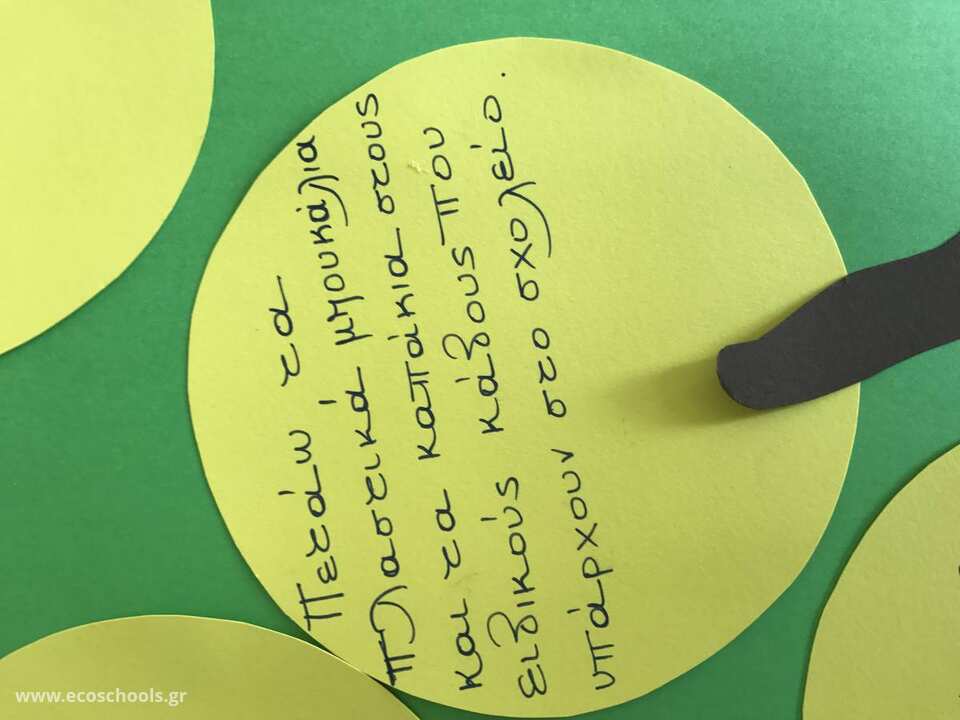 Πετάω τα
πλαστικά μπουκάλια
και τα καπάκια στους
ειδικούς κάδους που
υπάρχουν στο σχολείο.
www.ecoschools.gr